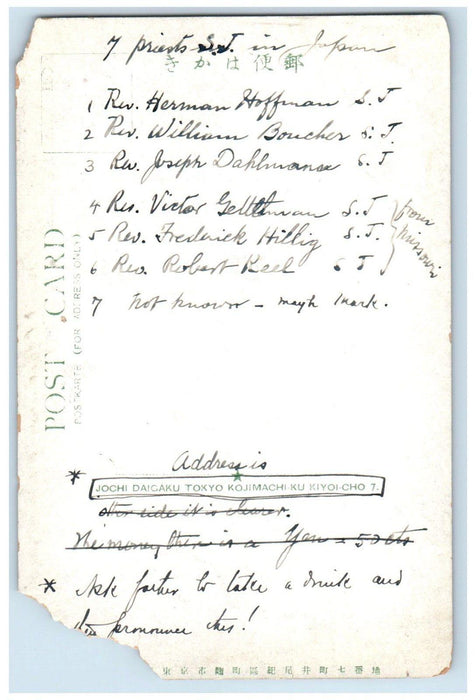 7 priests S.J. in Japan
きかは便郵
1 Rev. Herman Hoffman S.J
2 Rev. William Boucher S.J.
3 Rev. Joseph Dahlmann S.J
4 Rev. Victor Gettleman S.J
5 Rev. Frederick Hillig S.J.
6 Rev. Robert Keel S J
from Missouri
7 not known - mayb Mark.
POST CARD
POSTKARTE (FOR ADDRESS ONLY)
Address is
* JOCHI DAIGAKU TOKYO KOJIMACHI-KU KIYOI-CHO 7.
other side it is clearer.
The money there is a Yen = 50 cts
* Ask father to take a drink and
then pronounce this!
東京市麹町區紀尾井町七番地